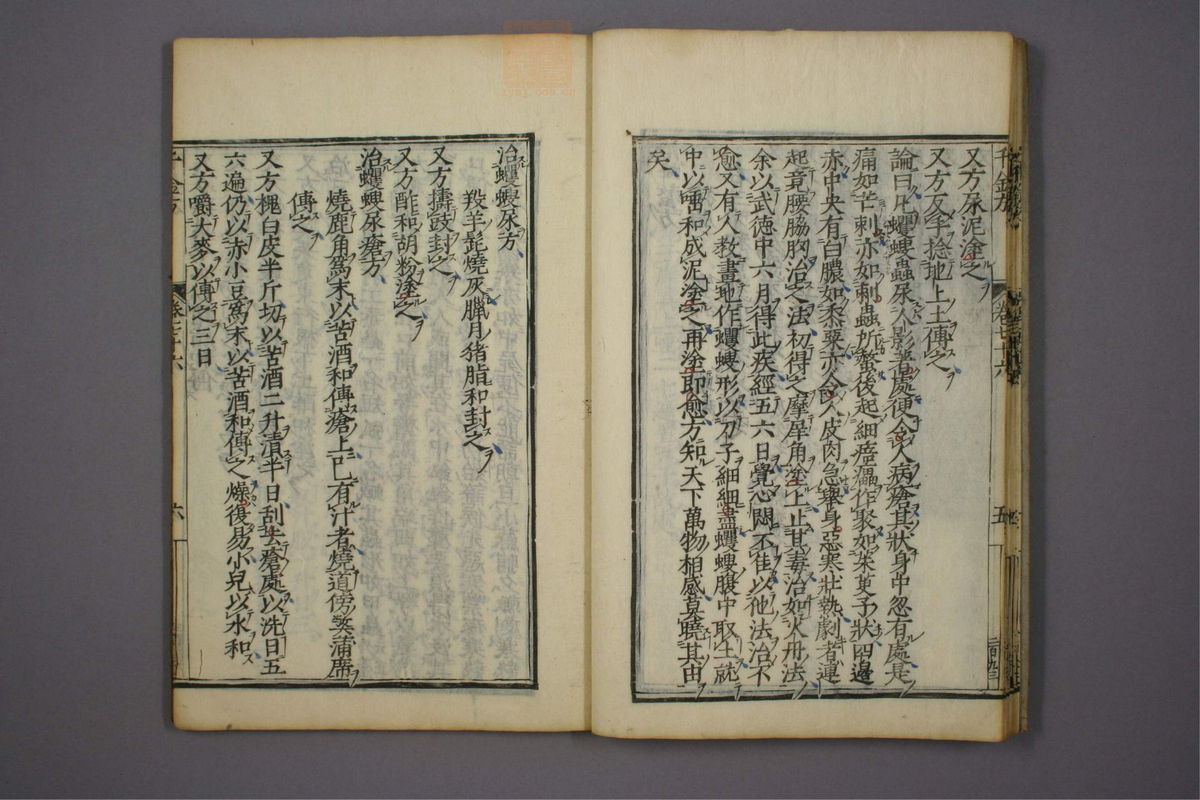 又方尿泥塗之
又方反手捻地上土傅之
論曰凡蠼螋蟲尿人影著處便令人病瘡其狀身中忽有處是
痛如芒刺亦如刺蟲所螫後起細㾦㿔作聚如茱萸子狀四邊
赤中央有白膿如黍粟亦令人皮肉急舉身惡寒壯熱劇者連
起竟腰脇胸治之法初得之摩犀角塗上止其毒治如火丹法
余以武德中六月得此疾經五六日覺心悶不佳以他法治不
愈又有人教畫地作蠼螋形以刀子細細盡蠼螋腹中取土就
中以唾和成泥塗之再塗即愈方知天下萬物相感莫曉其由
矣
千金方
卷七十六
五
治蠼螋尿方
羖羊髭燒灰臘月猪脂和封之
又方擣豉封之
又方酢和胡粉塗之
治蠼螋尿瘡方
燒鹿角為末以苦酒和傅瘡上已有汁者燒道傍弊蒲席
傅之
又方槐白皮半斤切以苦酒二升漬半日刮去瘡處以洗日五
六遍仍以赤小豆為末以苦酒和傅之燥復易小兒以水和
又方嚼大麥以傅之三日
千金方
卷七十六
六